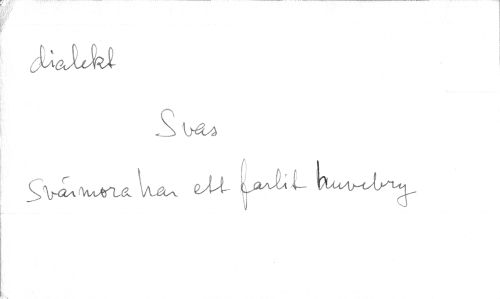 dialekt
Svas
Svärmora har ett farlit huvebry